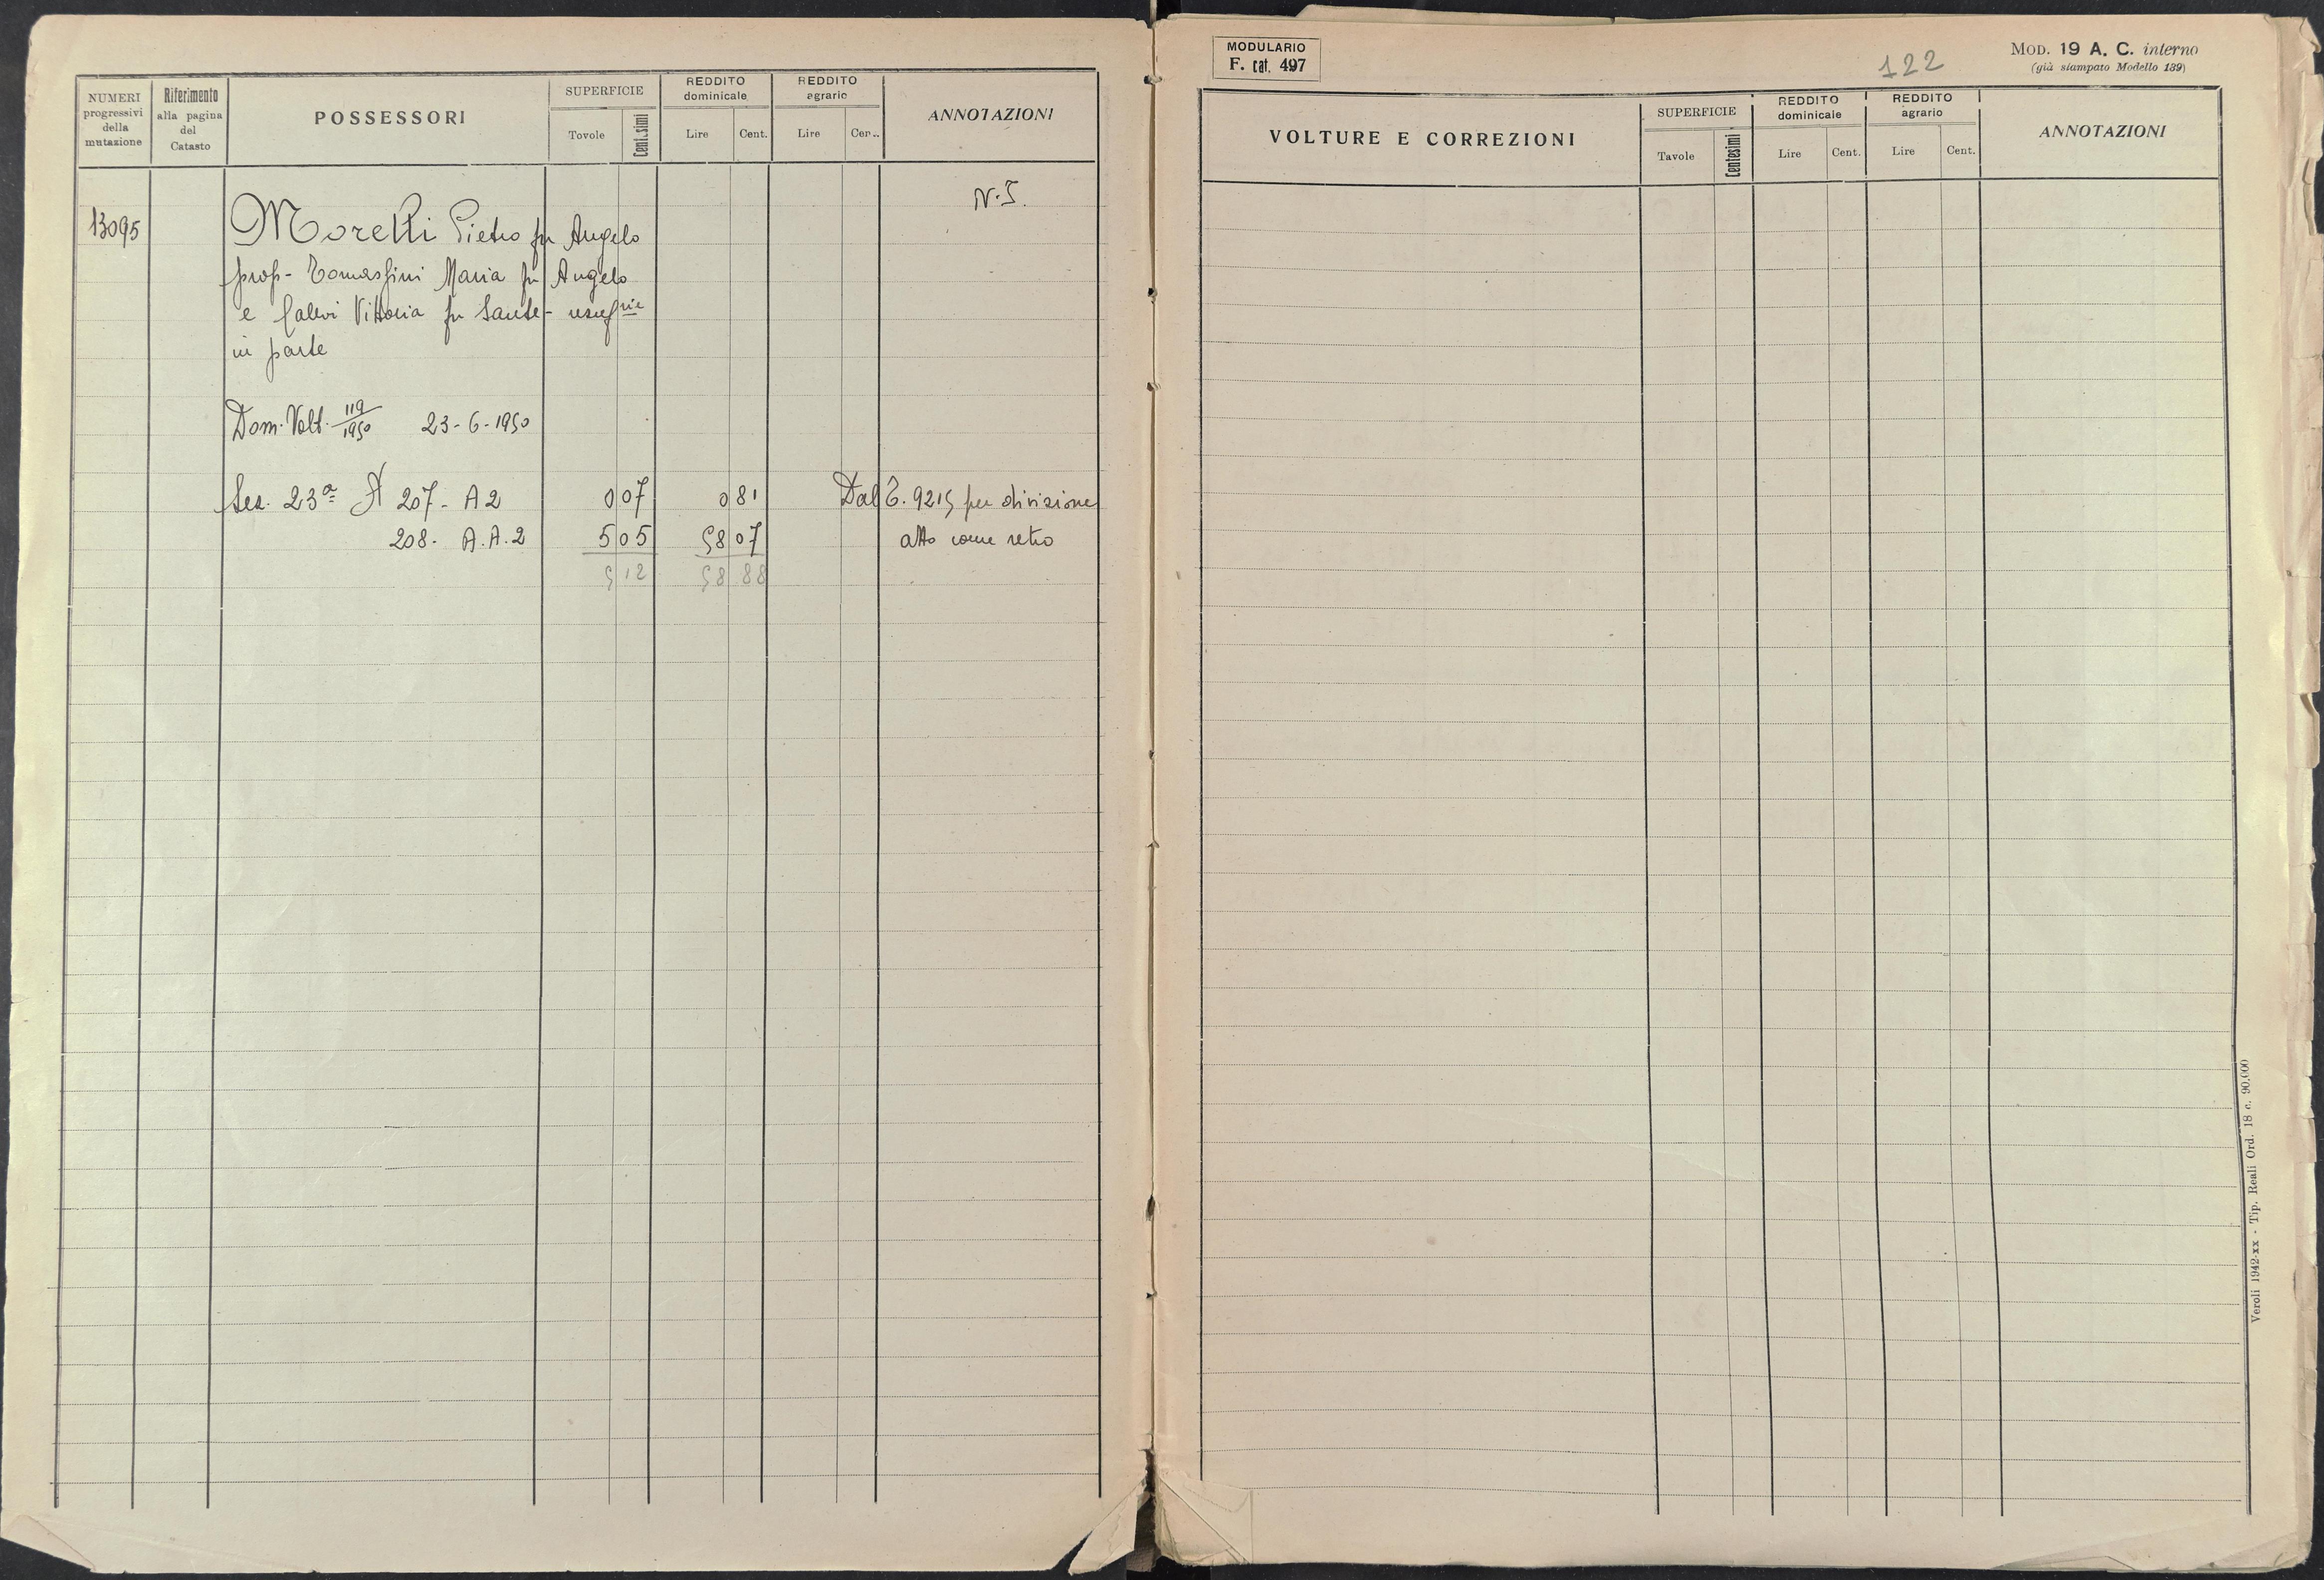 NUMERI progressivi della mutazione
Riferimento alla pagina del Catasto
POSSESSORI
SUPERFICIE
Tavole
Centesimi
REDDITO dominicale
Lire
Cent.
REDDITO agrario
Lire
Cen..
ANNOTAZIONI
13095
Moretti Pietro fu Angelo
prop- Tomassini Maria fu Angelo
e Calevi Vittoria fu Sante- usufrie
in parte
Dom. Volt. 119/1950 23-6-1950
Sez. 23ª A 207- A 2 0 07 0 81 Dal T. 9215 per divisione
208- A.A.2 5 05 58 07 atto come retro
5 12 58 88
MODULARIO
F. cat. 497
122
MOD. 19 A. C. interno
(già stampato Modello 139)
VOLTURE E CORREZIONI
SUPERFICIE
Tavole
Centesimi
REDDITO dominicale
Lire
Cent.
REDDITO agrario
Lire
Cent.
ANNOTAZIONI
Veroli 1942-XX - Tip. Reali Ord. 18 c. 90.000